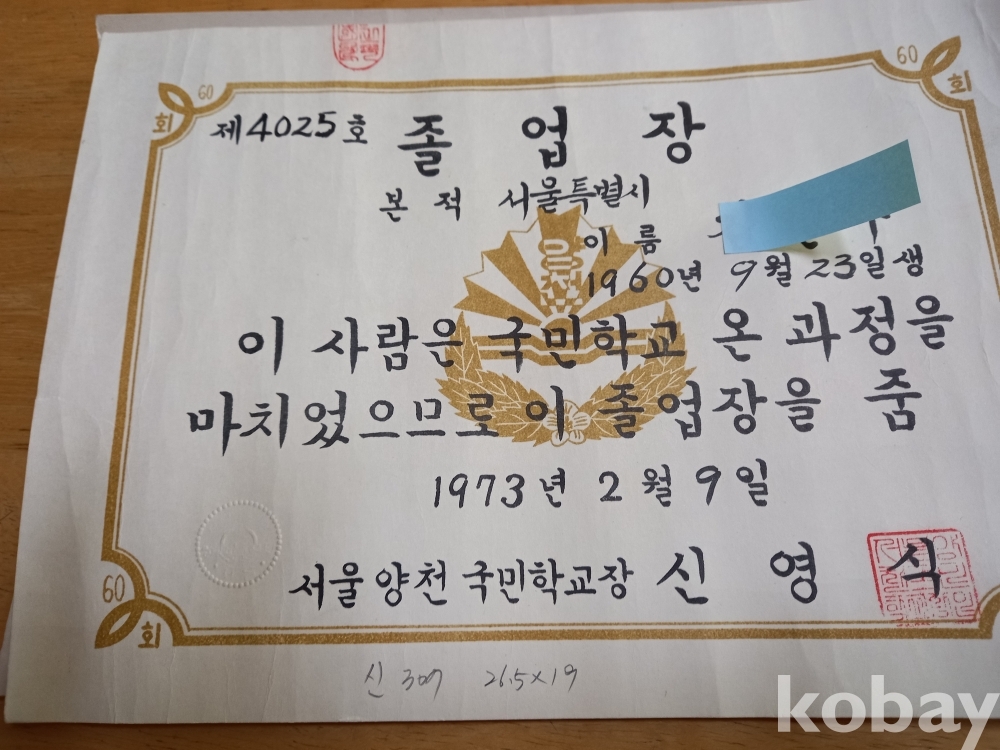 60 60
회 회
제4025호 졸 업 장
본 적 서울특별시
이 름
1960년 9월 23일생
양천
이 사람은 국민학교 온 과정을
마치었으므로 이 졸업장을 줌
1973년 2월 9일
서울양천국민학교장 신 영 식
60
회
26.5×19
kobay